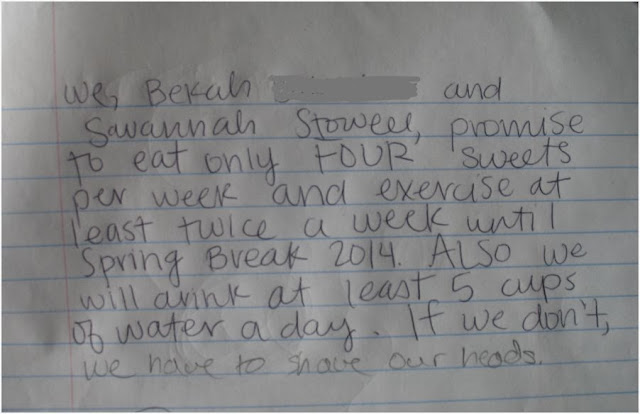 We, Bekah and
Savannah Stowell, promise
to eat only FOUR sweets
per week and exercise at
least twice a week until
Spring Break 2014. ALSO we
will drink at least 5 cups
of water a day. If we don't,
we have to shave our heads.